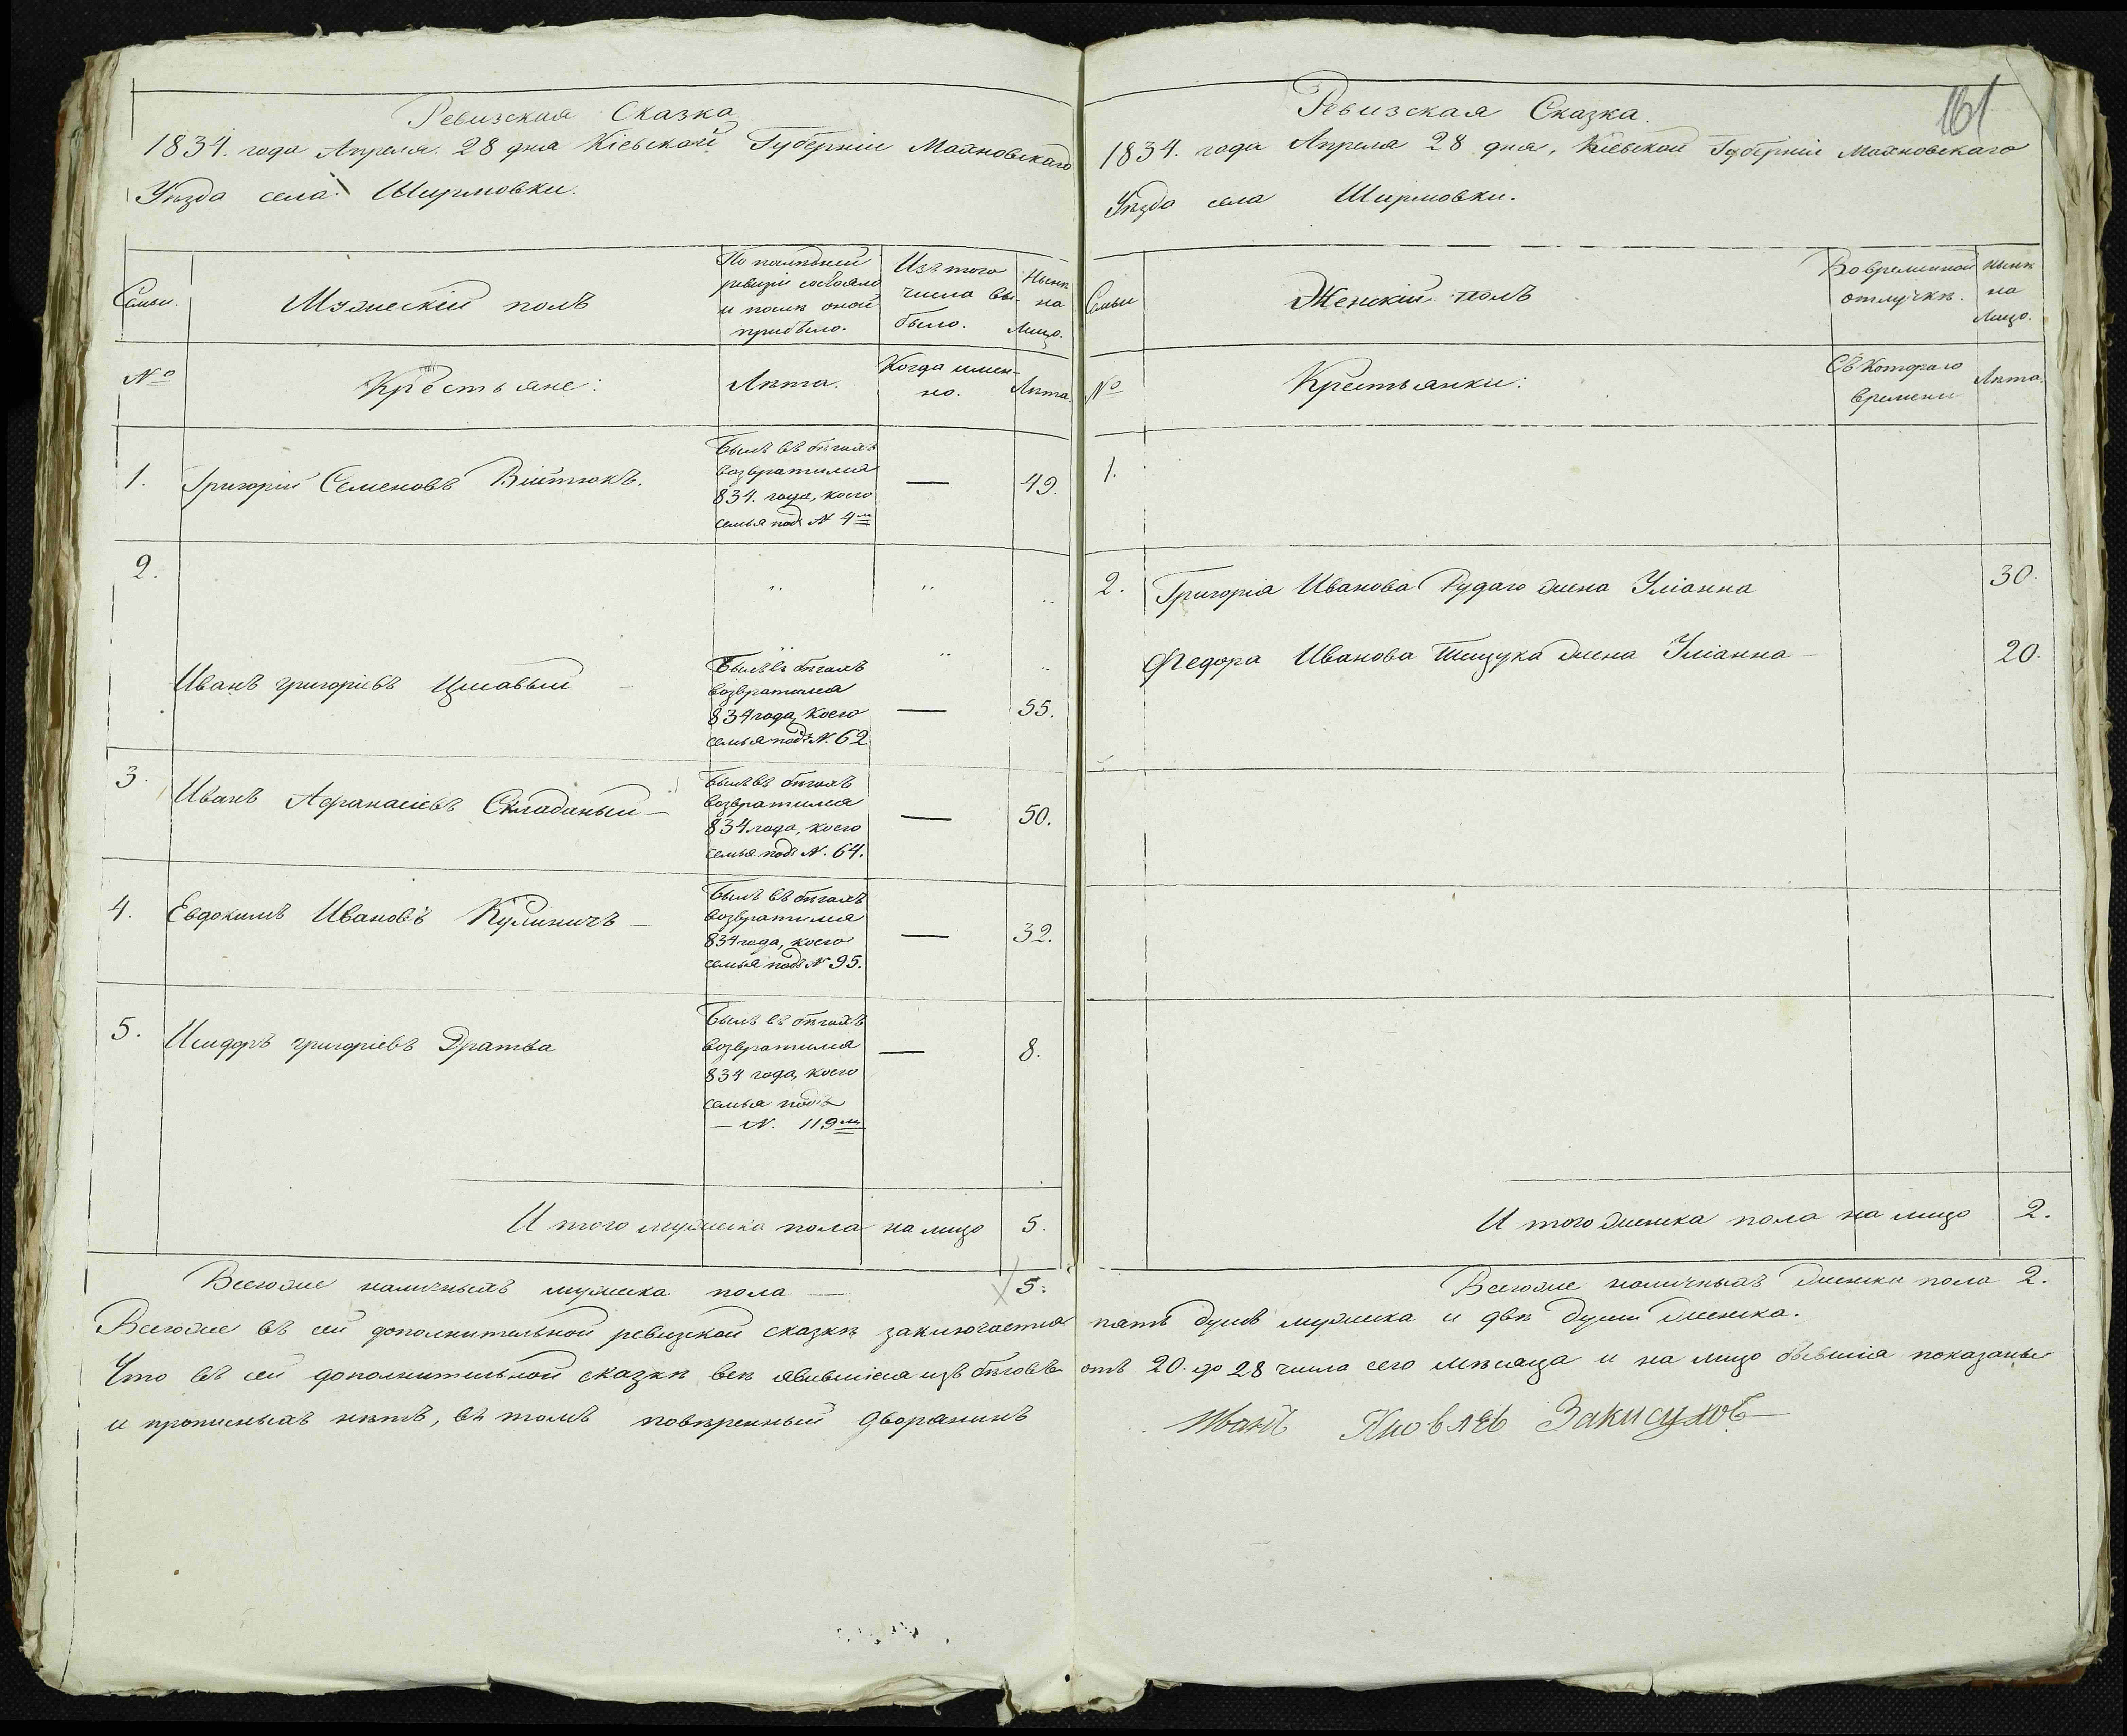 Ревизская Сказка
1834. года Апреля 28 дня Кіевской Губерніи Махновскаго
Уѣзда села Ширмовки.
Семьи.
Мужескій полъ
По послѣдней
ревизіи состояло
и послѣ оной
прибыло.
Изъ того
числа вы-
было.
Нынѣ
на
лицо.
№
Крестьяне:
Лѣта.
Когда имен-
но.
Лѣта.
1.
Григорій Семеновъ Війтюкъ.
Былъ въ бѣгахъ
возвратился
834. года, коего
семья подъ N 4м
—
49.
2.
Иванъ Григоріевъ
Былъ въ бѣгахъ
возвратился
834 года, коего
семья подъ N. 62
—
55.
3.
Иванъ Афанасіевъ Складаный —
Былъ въ бѣгахъ
возвратился
834 года, коего
семья подъ N. 64.
—
50.
4.
Евдокимъ Ивановъ Кулиничъ —
Былъ въ бѣгахъ
возвратился
834 года, коего
семья подъ N 95.
—
32.
5.
Исидоръ Григоріевъ Дратва
Былъ въ бѣгахъ
возвратился
834 года, коего
семья подъ
— N. 119м
—
8.
И того мужеска пола на лицо 5.
Всегоже наличныхъ мужеска пола — 5.
161
Ревизская Сказка.
1834. года Апреля 28 дня, Кіевской Губерніи Махновскаго
Уѣзда села Ширмовки.
Семьи
Женскій полъ
Во временной
отлучкѣ.
нынѣ
на
лицо.
№
Крестьянки:
Съ котораго
времени
Лѣта.
1.
2. Григорія Иванова Рудаго жена Уліанна 30.
Федора Иванова Тищука жена Уліанна — 20.
И того женска пола на лицо 2.
Всегоже наличныхъ женска пола 2.
Всегоже въ сей дополнительной ревизской сказкѣ заключается пять душъ мужеска и двѣ души женска.
Что въ сей дополнительной сказкѣ всѣ явившіеся изъ бѣговъ отъ 20. до 28 числа сего мѣсяца и на лицо бывшія показаны
и прописныхъ нѣтъ, въ томъ повѣренный дворянинъ Иванъ